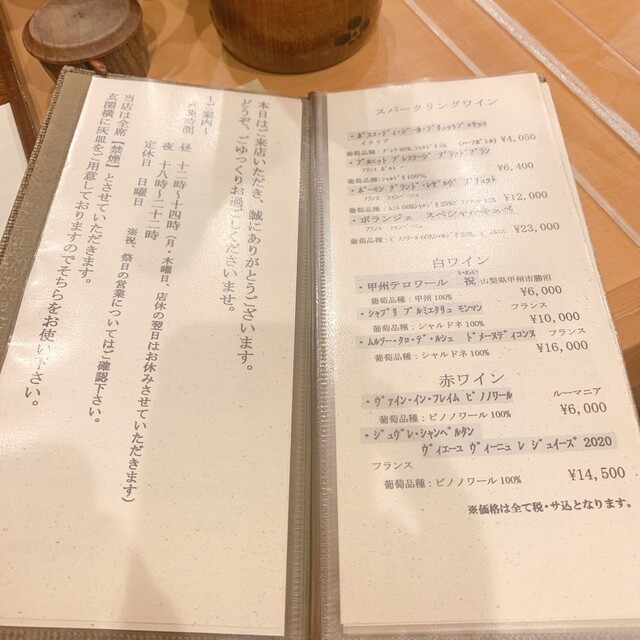 本日はご来店いただき、誠にありがとうございます。
どうぞ、ごゆっくりお過ごしくださいませ。
～ご案内～
営業時間 昼 十二時～十四時(月・木曜日、店休の翌日はお休みさせていただきます)
夜 十八時～二十二時
定休日 日曜日 ※祝、祭日の営業についてはご確認下さい。
当店は全席【禁煙】とさせていただきます。
玄関横に灰皿をご用意しておりますのでそちらをお使い下さい。
スパークリングワイン
イタリア (ハーフボトル) ¥4,050
¥6,400
フランス
¥12,000
・ボランジェ スペシャル・キュベ
¥23,000
白ワイン
・甲州テロワール 祝 山梨県甲州市勝沼
葡萄品種：甲州100% ¥6,000
・シャブリ プルミエクリュ モンマン フランス
葡萄品種：シャルドネ100% ¥10,000
・ムルソー・クロ・デ・ルシェ ドメーヌディコンヌ フランス
葡萄品種：シャルドネ100% ¥16,000
赤ワイン
・ヴァイン・イン・フレイム ピノノワール ルーマニア
葡萄品種：ピノノワール100% ¥6,000
・ジュヴレ・シャンベルタン
ヴィエーユ ヴィーニュ レ ジュイーズ 2020
フランス
葡萄品種：ピノノワール100% ¥14,500
※価格は全て税・サ込となります。